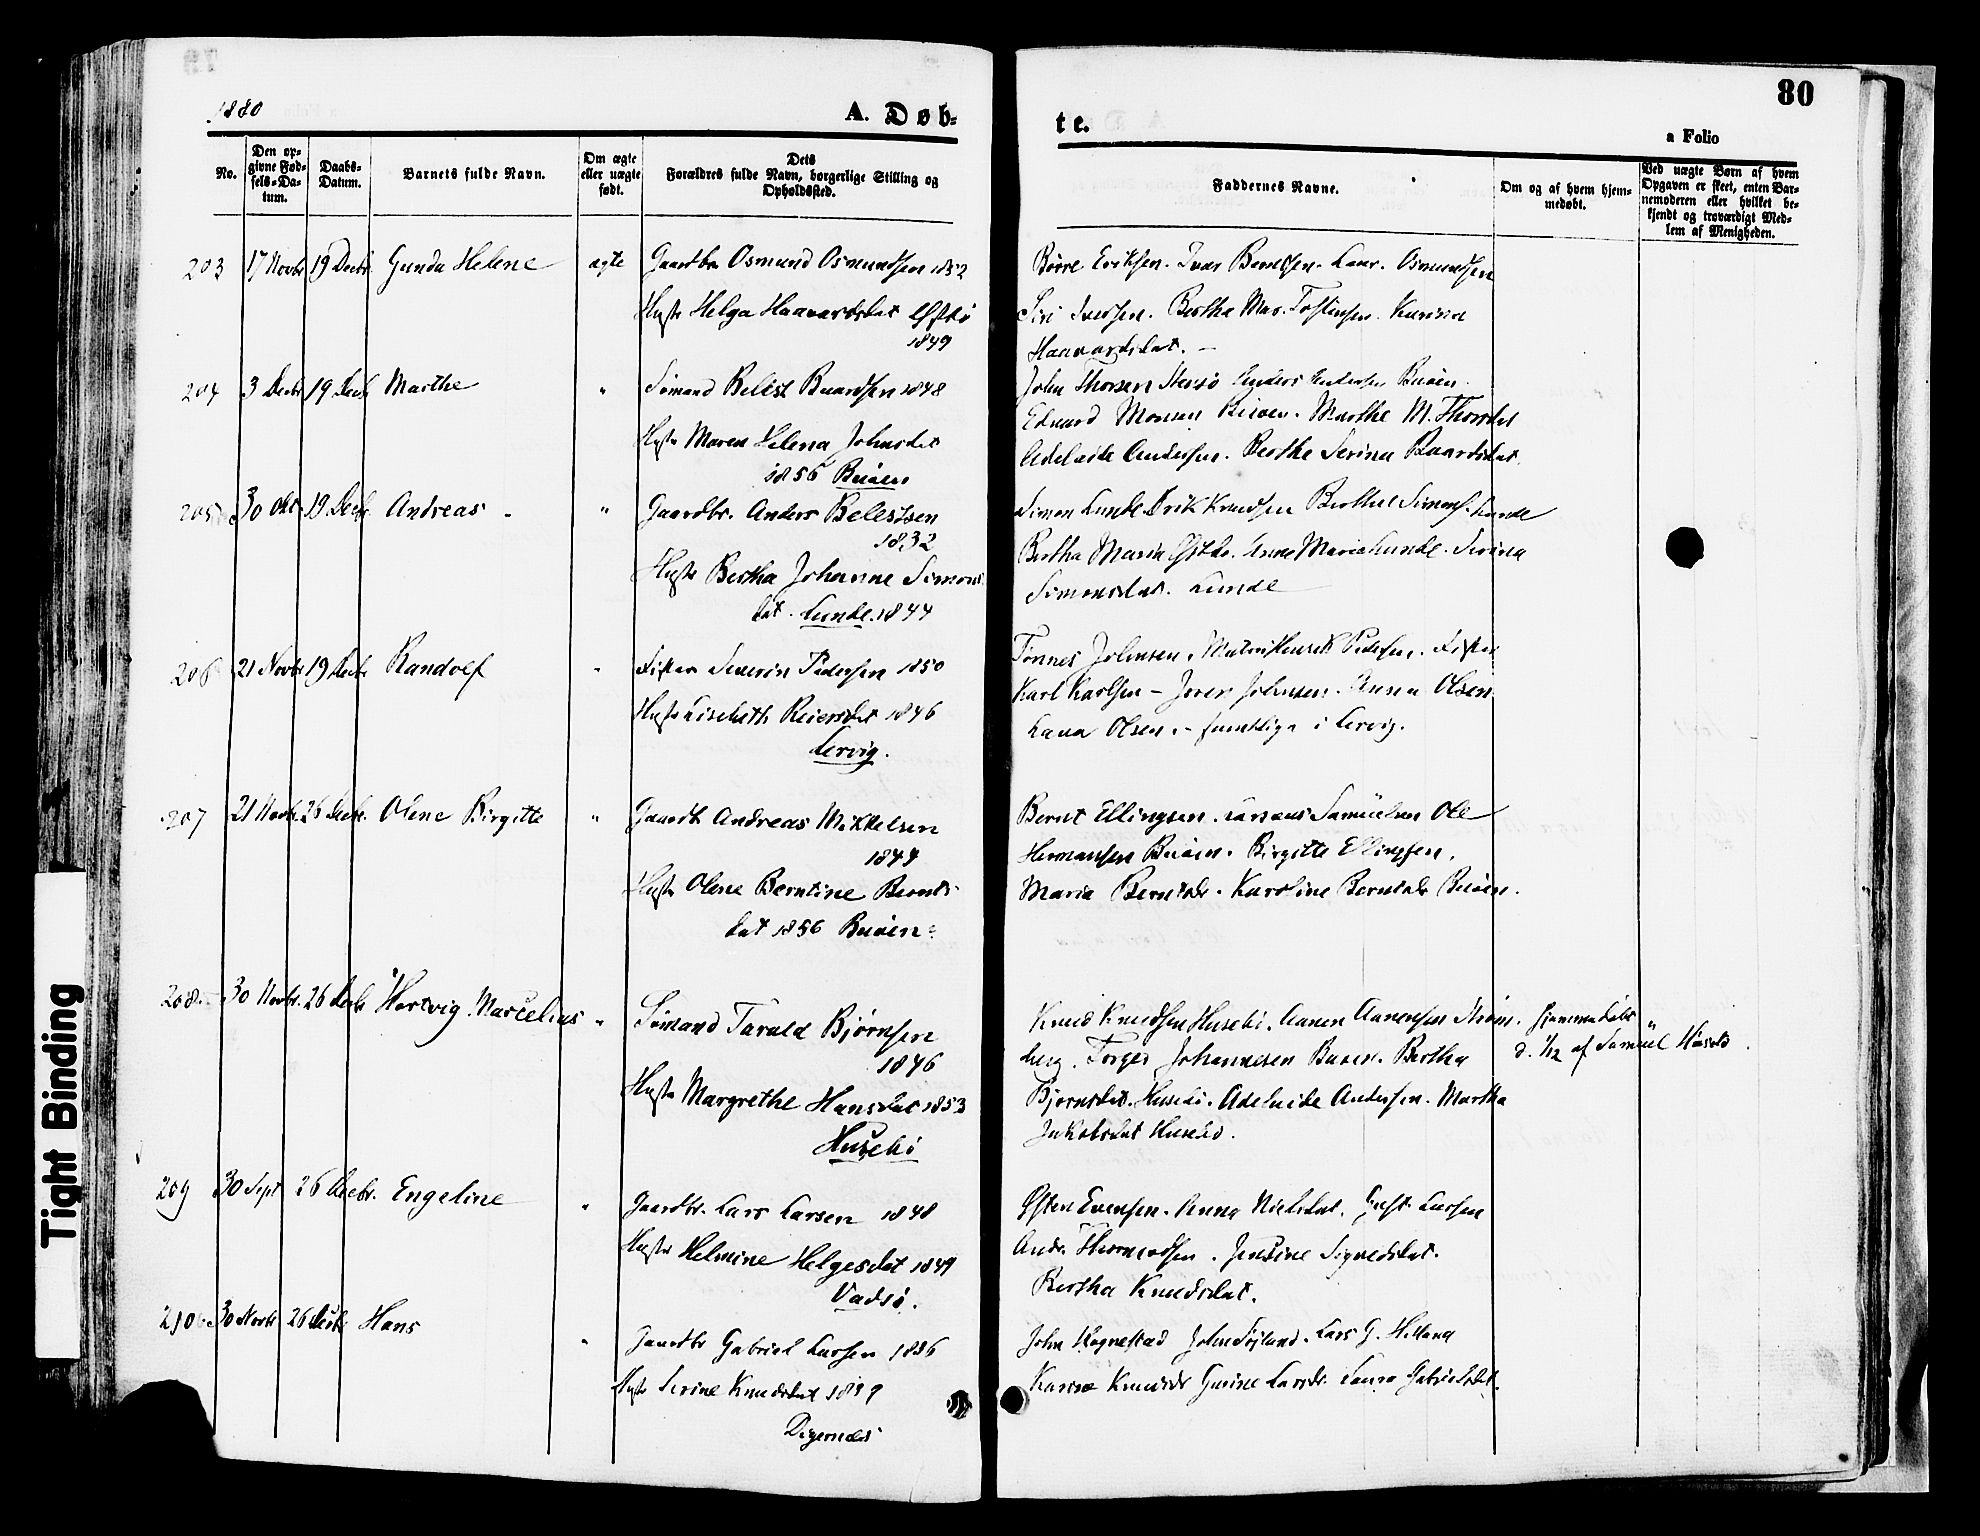 1880
A. Døb-
te.
80
a Folio
No.
Den op-
givne Fød-
sels-Da-
tum.
Daabs-
Datum.
Barnets fulde Navn.
Om ægte
eller uægte
født.
Dets
Forældres fulde Navn, borgerlige Stilling og
Opholdssted.
Faddernes Navne.
Om og af hvem hjem-
medøbt.
Ved uægte Børn af hvem
Opgaven er skeet, enten Bar-
nemoderen eller hvilket be-
kjendt og troværdigt Med-
lem af Menigheden.
203 17 Novbr 19 Decbr. Gunda Helene ægte Gaardbr Osmund Osmundsen 1852
Hustr Helga Haavardsdat
1849
Børre Eriksen. Ivar Berntsen. Laur. Osmundsen
Siri Iversen. Bertha Mar. Tostensen. Karina
Haavardsdat. –
204 3 Decbr 19 Decb Marthe " Sømand Belest Baardsen 1848
Hustr Maren Helena Johnsdat
1856 Buøen
John Thorsen Anders Andersen Buøen.
Eduard Monsen Buøen. Marthe M. Thorsdat
Adelaide Andersen. Berthe Serina Baardsdat.
205 30 Okt 19 Decbr. Andreas " Gaardbr. Anders Belestsen
1832
Hustr Bertha Johanne Simons
dat. Lunde. 1844
Simon Lunde Erik Knudsen Berthel Simons. Lunde
Bertha Maria Anna Maria Lunde. Serina
Simonsdat. Lunde
206 21 Novbr 19 Decbr Randolf " Fisker Severin Pedersen 1850
Hustr Lisebeth Reiersdat 1846
Lervig.
Tønnes Johnsen. Henrik Pedersen. Fisker
Karl Karlsen – Johnsen. Anna Olsen
Lava Olsen. – samtlige i Lervig.
207 21 Novbr 26 Decbr. Olene Birgitte " Gaardb Andreas Mikkelsen
1844
Hustr Olene Berntine Bernts
dat 1856 Buøen
Bernt Ellingsen. Samuelsen Ole
Hermansen Buøen. Birgitte Ellingsen.
Maria Berntsdr. Karoline Berntsdr Buøen.
208 30 Novbr. 26 Decbr Hartvig Marcelius " Sømand Tarald Bjørnsen
1846
Hustr Margrethe Hansdat 1853
Husebø
Knud Knudsen Husebø. Aanen Aanensen
berg. Torger Johannesen Buøen. Bertha
Bjørnsdat. Husebø. Adelaide Andersen. Martha
Jakobsdat Husebø.
hjemmedøbt
d. 1/12 af Samuel
209 30 Sept 26 Decbr. Engeline " Gaardbr. Lars Larsen 1848
Hustr Helmine Helgesdat 1849
Vadsø.
Østen Evensen. Anna Nielsdat. Gust. Larsen
Andr. Thormodsen. Jensine Sigvedsdat.
Bertha Knudsdat.
210 30 Novbr 26 Decbr Hans " Gaardbr Gabriel Larsen 1836
Hustr Serine Knudsdat 1839
Digernæs
John Rognestad John Søylund. Lars G. Helland
Karine Knudsdr Gurine Larsdr. Laura Gabrielsdat.
Tight Binding